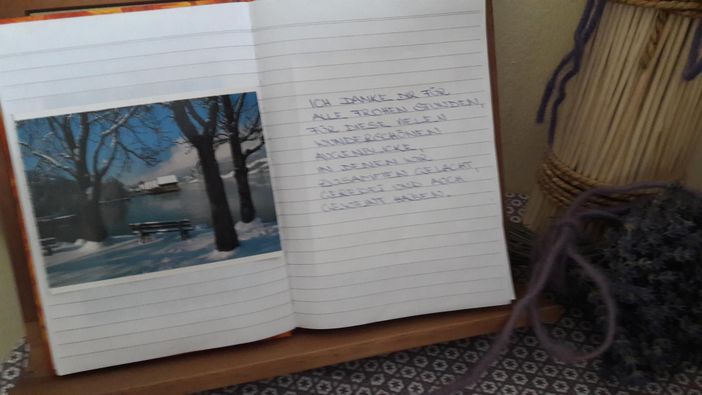 ICH DANKE DIR FÜR
ALLE FROHEN STUNDEN,
FÜR DIESE VIELEN
WUNDERSCHÖNEN
AUGENBLICKE,
IN DENEN WIR
ZUSAMMEN GELACHT,
GEREDET UND AUCH
GEWEINT HABEN.